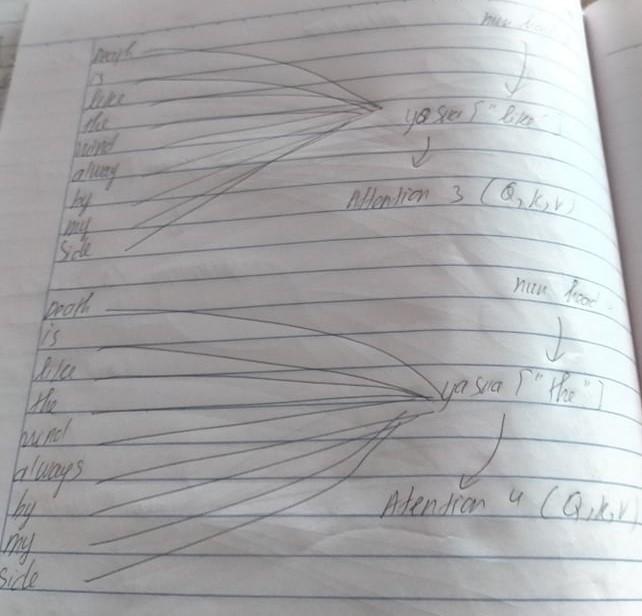 Death
is
like
the
wind
alway
by
my
Side
num head
yasua ["like"]
Attention 3 (Q, K, V)
Death
is
like
the
wind
always
by
my
Side
num head
yasua ["the"]
Atention 4 (Q, K, V)